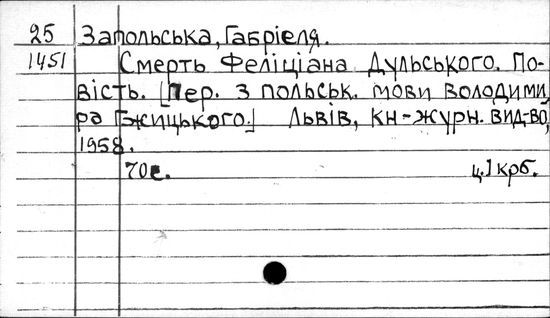 25 Запольська, Габріеля.
1451 Смерть Феліціана Дульського. По-
вість. [Пер. з польськ. мови Володими
ра Гжицького.] Львів, кн-журн. вид-во,
1958.
70с. ц. 1 крб.